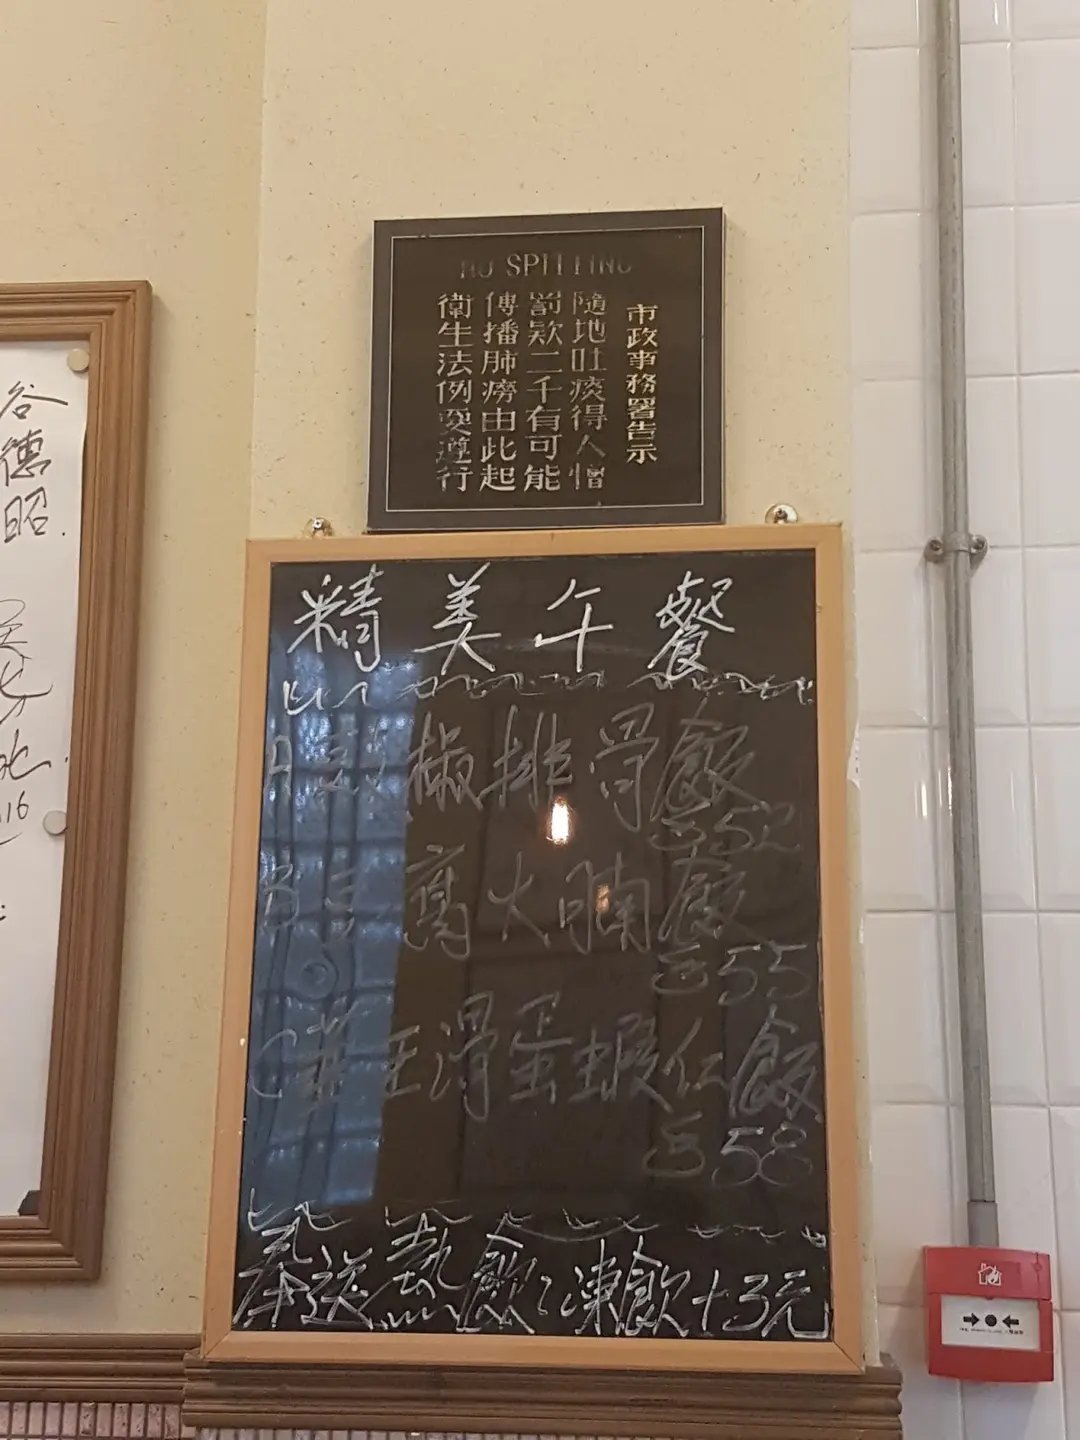 NO SPITTING
市政事務署告示
隨地吐痰得人憎
罰欵二千有可能
傳播肺癆由此起
衛生法例要遵行
谷德昭
精美午餐
A 椒排骨飯
$52
B 火腩飯
$55
C 韮王滑蛋蝦仁飯
$58
奉送熱飲凍飲+3元